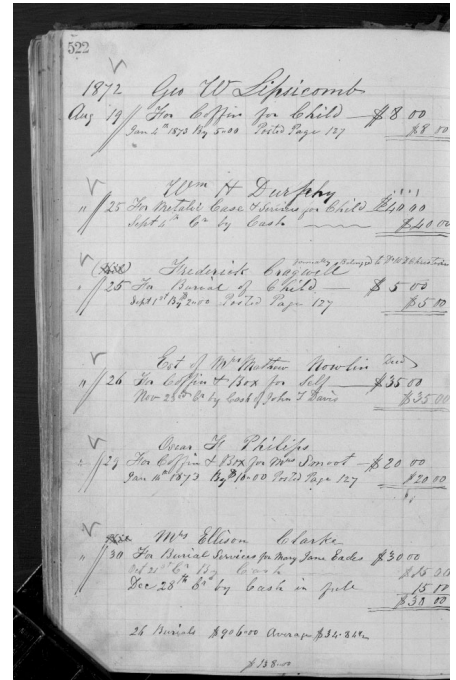 522
1872 Geo W Lipsicomb
Aug 19 For Coffin for Child — $8 00
Jan 4th 1873 By 5=00 Posted Page 127 $8 00
Wm H Durphy
" 25 For Metalic Case & Services for Child $40.00
Sept 6th Cr by Cash $40.00
Frederick Cragwell formally Belonged to
" 25 For Burial of Child — $5 00
Sept 1st By 2=00 Posted Page 127 $5 00
Est of Mrs Mathew Nowlin Decd
" 26 For Coffin & Box for Self — $35 00
Nov 23rd Cr by Cash of John T Davis $35 00
Oscar F Philips
" 29 For Coffin & Box for Mrs Smoot — $20.00
Jan 14th 1873 By $10=00 Posted Page 127 $20 00
Mrs Ellison Clarke
" 30 For Burial Services for Mary Jane Eades $30.00
Oct 21st Cr By Cash $15 00
Dec 28th Cr by Cash in full 15 00
$30 00
26 Burials $906=00 Average $34.84